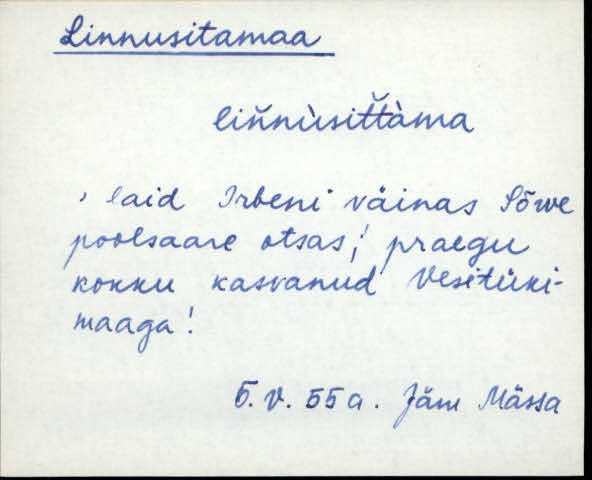 Linnusitamaa
liňnùsiťťàma
' laid Irbeni väinas Sõrve
poolsaare otsas;' praegu
kokku kasvanud Vesitüki-
maaga!
5. V. 55 a. Jäm Mässa